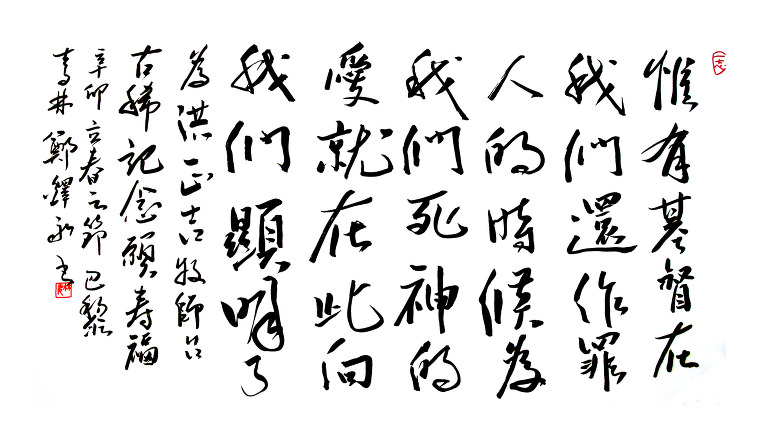 惟有基督在
我們還作罪
人的時候為
我們死神的
愛就在此向
我們顯明了
為洪正吉牧師
古稀記念願壽福
辛卯立春之節巴黎
鄭